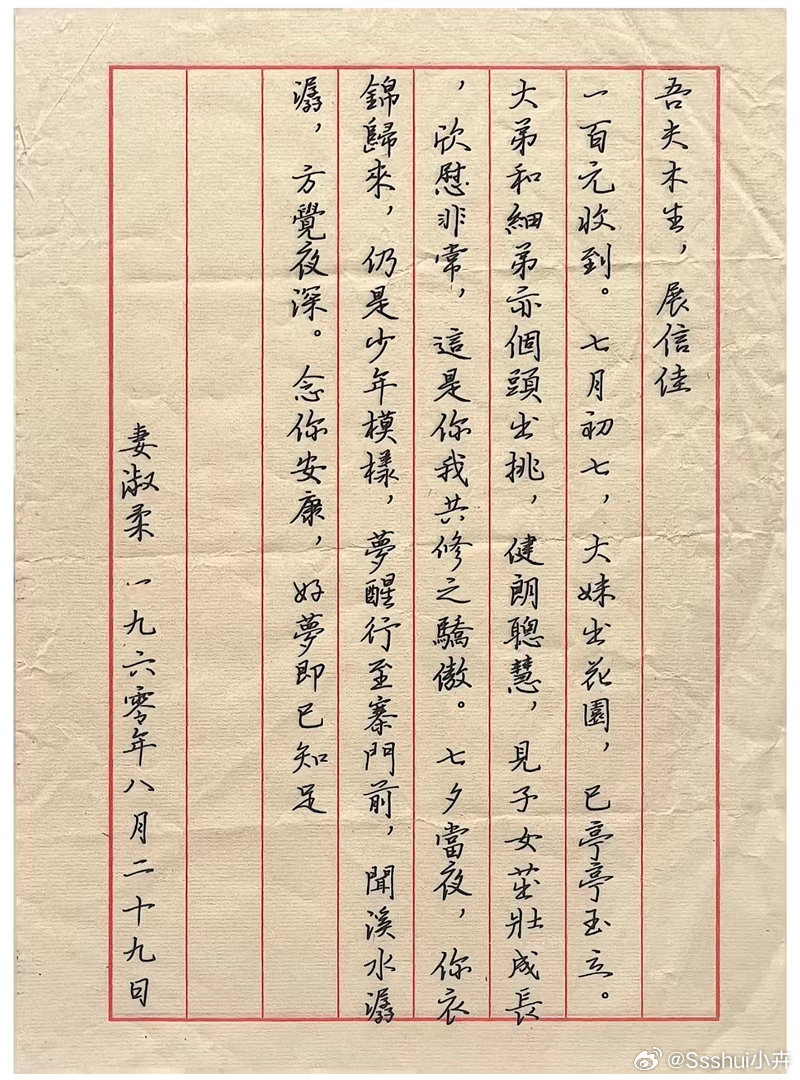 吾夫木生，展信佳
一百元收到。七月初七，大妹出花園，已亭亭玉立。
大弟和細弟亦個頭出挑，健朗聰慧，見子女茁壯成長
，欣慰非常，這是你我共修之驕傲。七夕當夜，你衣
錦歸來，仍是少年模樣，夢醒行至寨門前，聞溪水潺
潺，方覺夜深。念你安康，好夢即已知足
妻淑柔 一九六零年八月二十九日
@Ssshui小卉